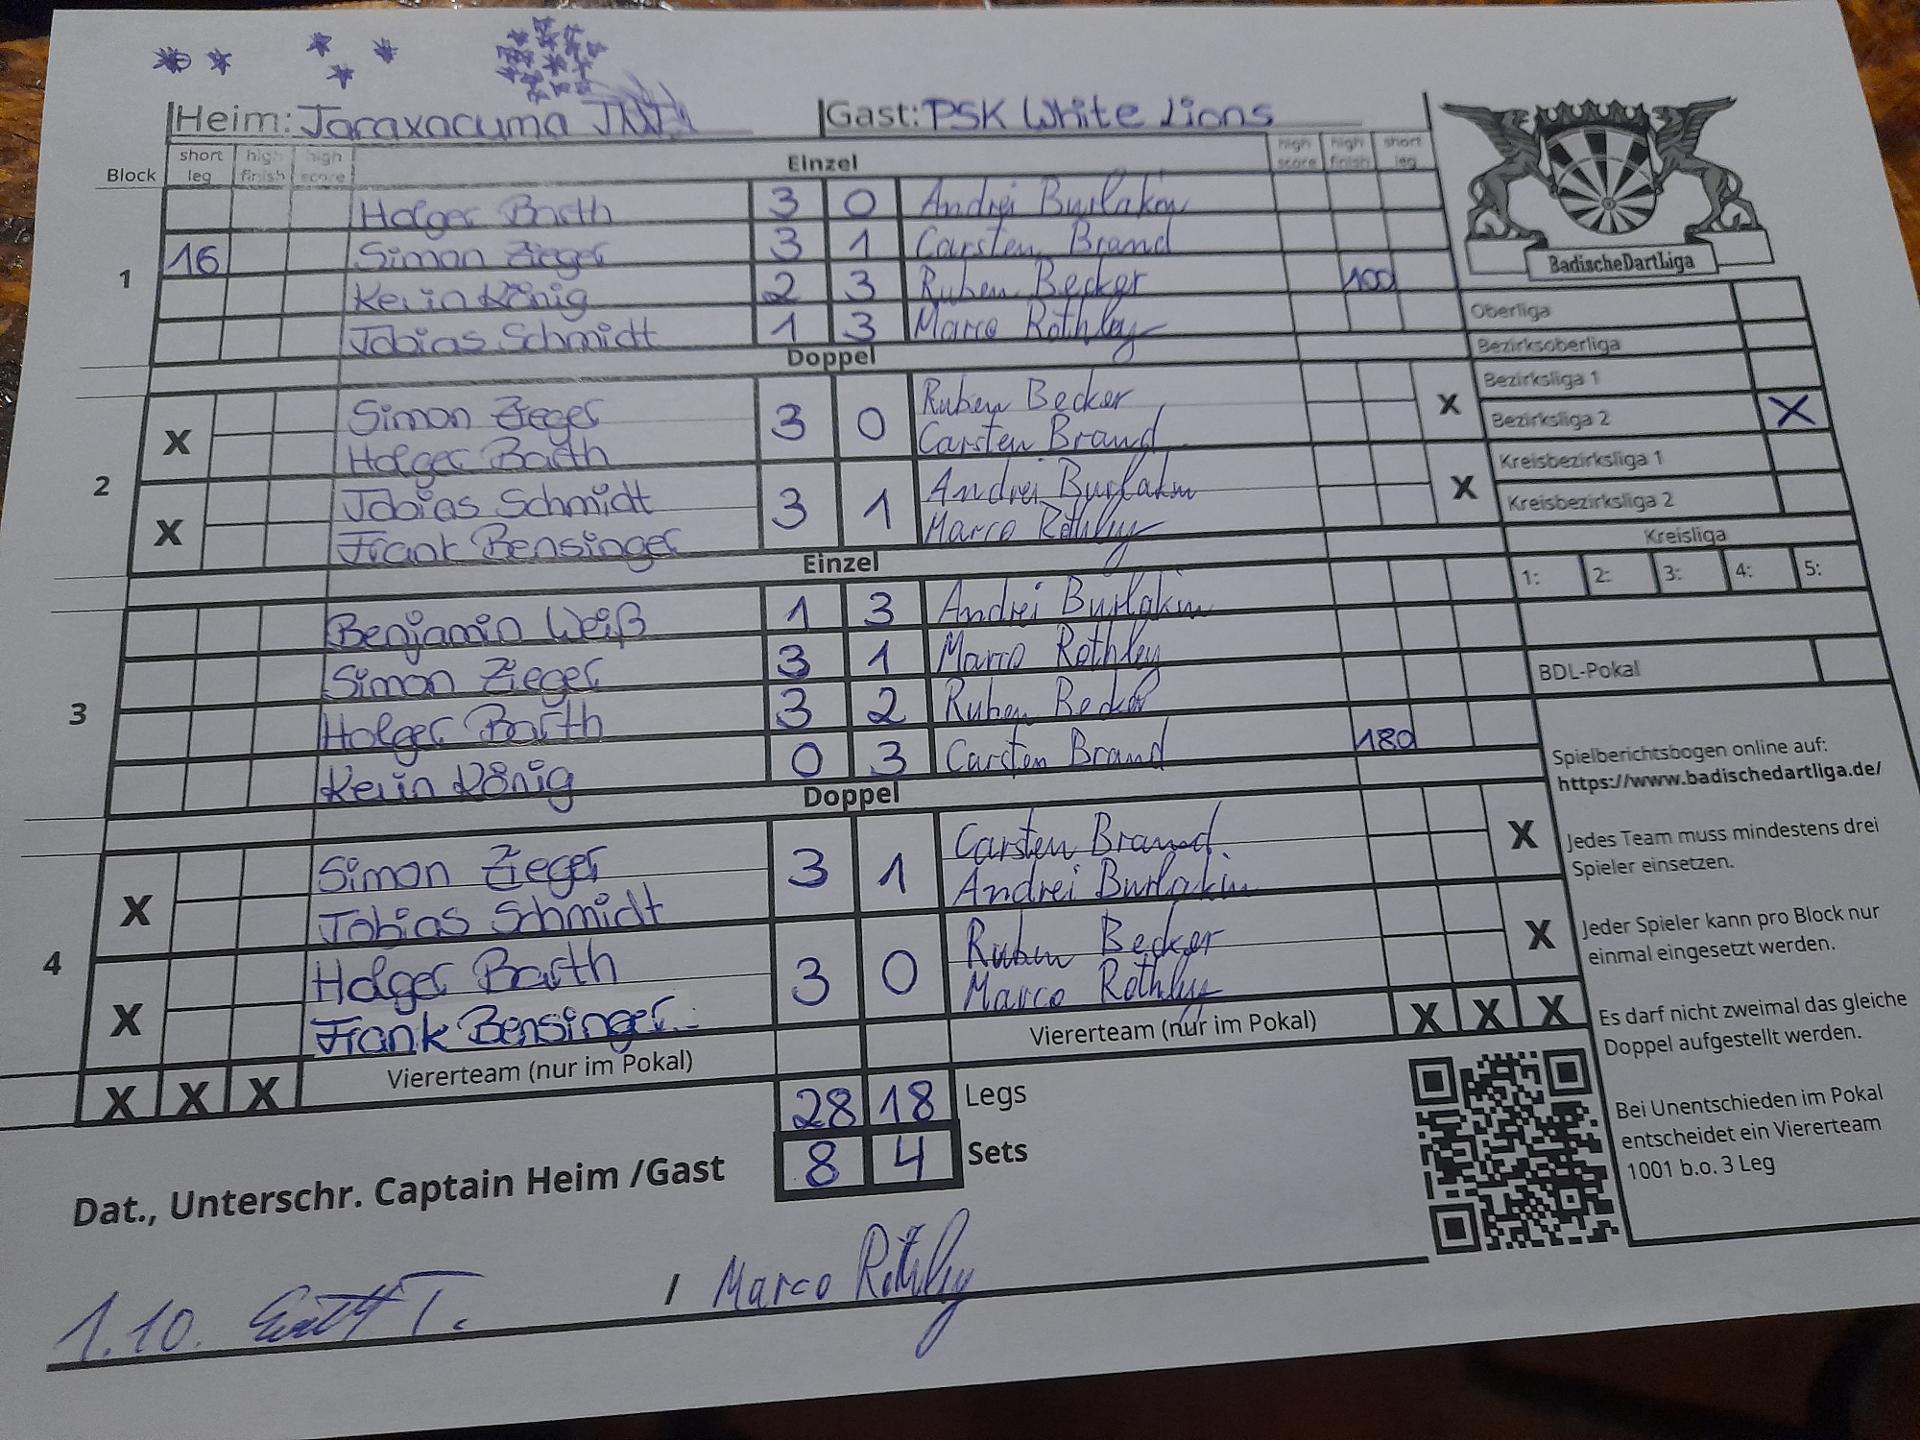 Heim: Taraxacuma Gast: PSK White Lions
Block short leg high finish high score Einzel high score high finish short leg
Holger Barth 3 0 Andrei Burlakin
16 Simon Zieger 3 1 Carsten Brand
1 Kevin König 2 3 Ruben Becker 100
Tobias Schmidt 1 3 Marco Rothley
Doppel
X Simon Zieger 3 0 Ruben Becker X
Holger Barth Carsten Brand
2
X Tobias Schmidt 3 1 Andrei Burlakin X
Frank Bensinger Marco Rothley
Einzel
Benjamin Weiß 1 3 Andrei Burlakin
Simon Zieger 3 1 Marco Rothley
3 Holger Barth 3 2 Ruben Becker
Kevin König 0 3 Carsten Brand 180
Doppel
X Simon Zieger 3 1 Carsten Brand X
Tobias Schmidt Andrei Burlakin
4
X Holger Barth 3 0 Ruben Becker X
Frank Bensinger Marco Rothley
X X X Viererteam (nur im Pokal) Viererteam (nur im Pokal) X X X
28 18 Legs
8 4 Sets
Dat., Unterschr. Captain Heim /Gast
1.10. / Marco Rothley
BadischeDartLiga
Oberliga
Bezirksoberliga
Bezirksliga 1
Bezirksliga 2 X
Kreisbezirksliga 1
Kreisbezirksliga 2
Kreisliga
1: 2: 3: 4: 5:
BDL-Pokal
Spielberichtsbogen online auf:
https://www.badischedartliga.de/
Jedes Team muss mindestens drei
Spieler einsetzen.
Jeder Spieler kann pro Block nur
einmal eingesetzt werden.
Es darf nicht zweimal das gleiche
Doppel aufgestellt werden.
Bei Unentschieden im Pokal
entscheidet ein Viererteam
1001 b.o. 3 Leg